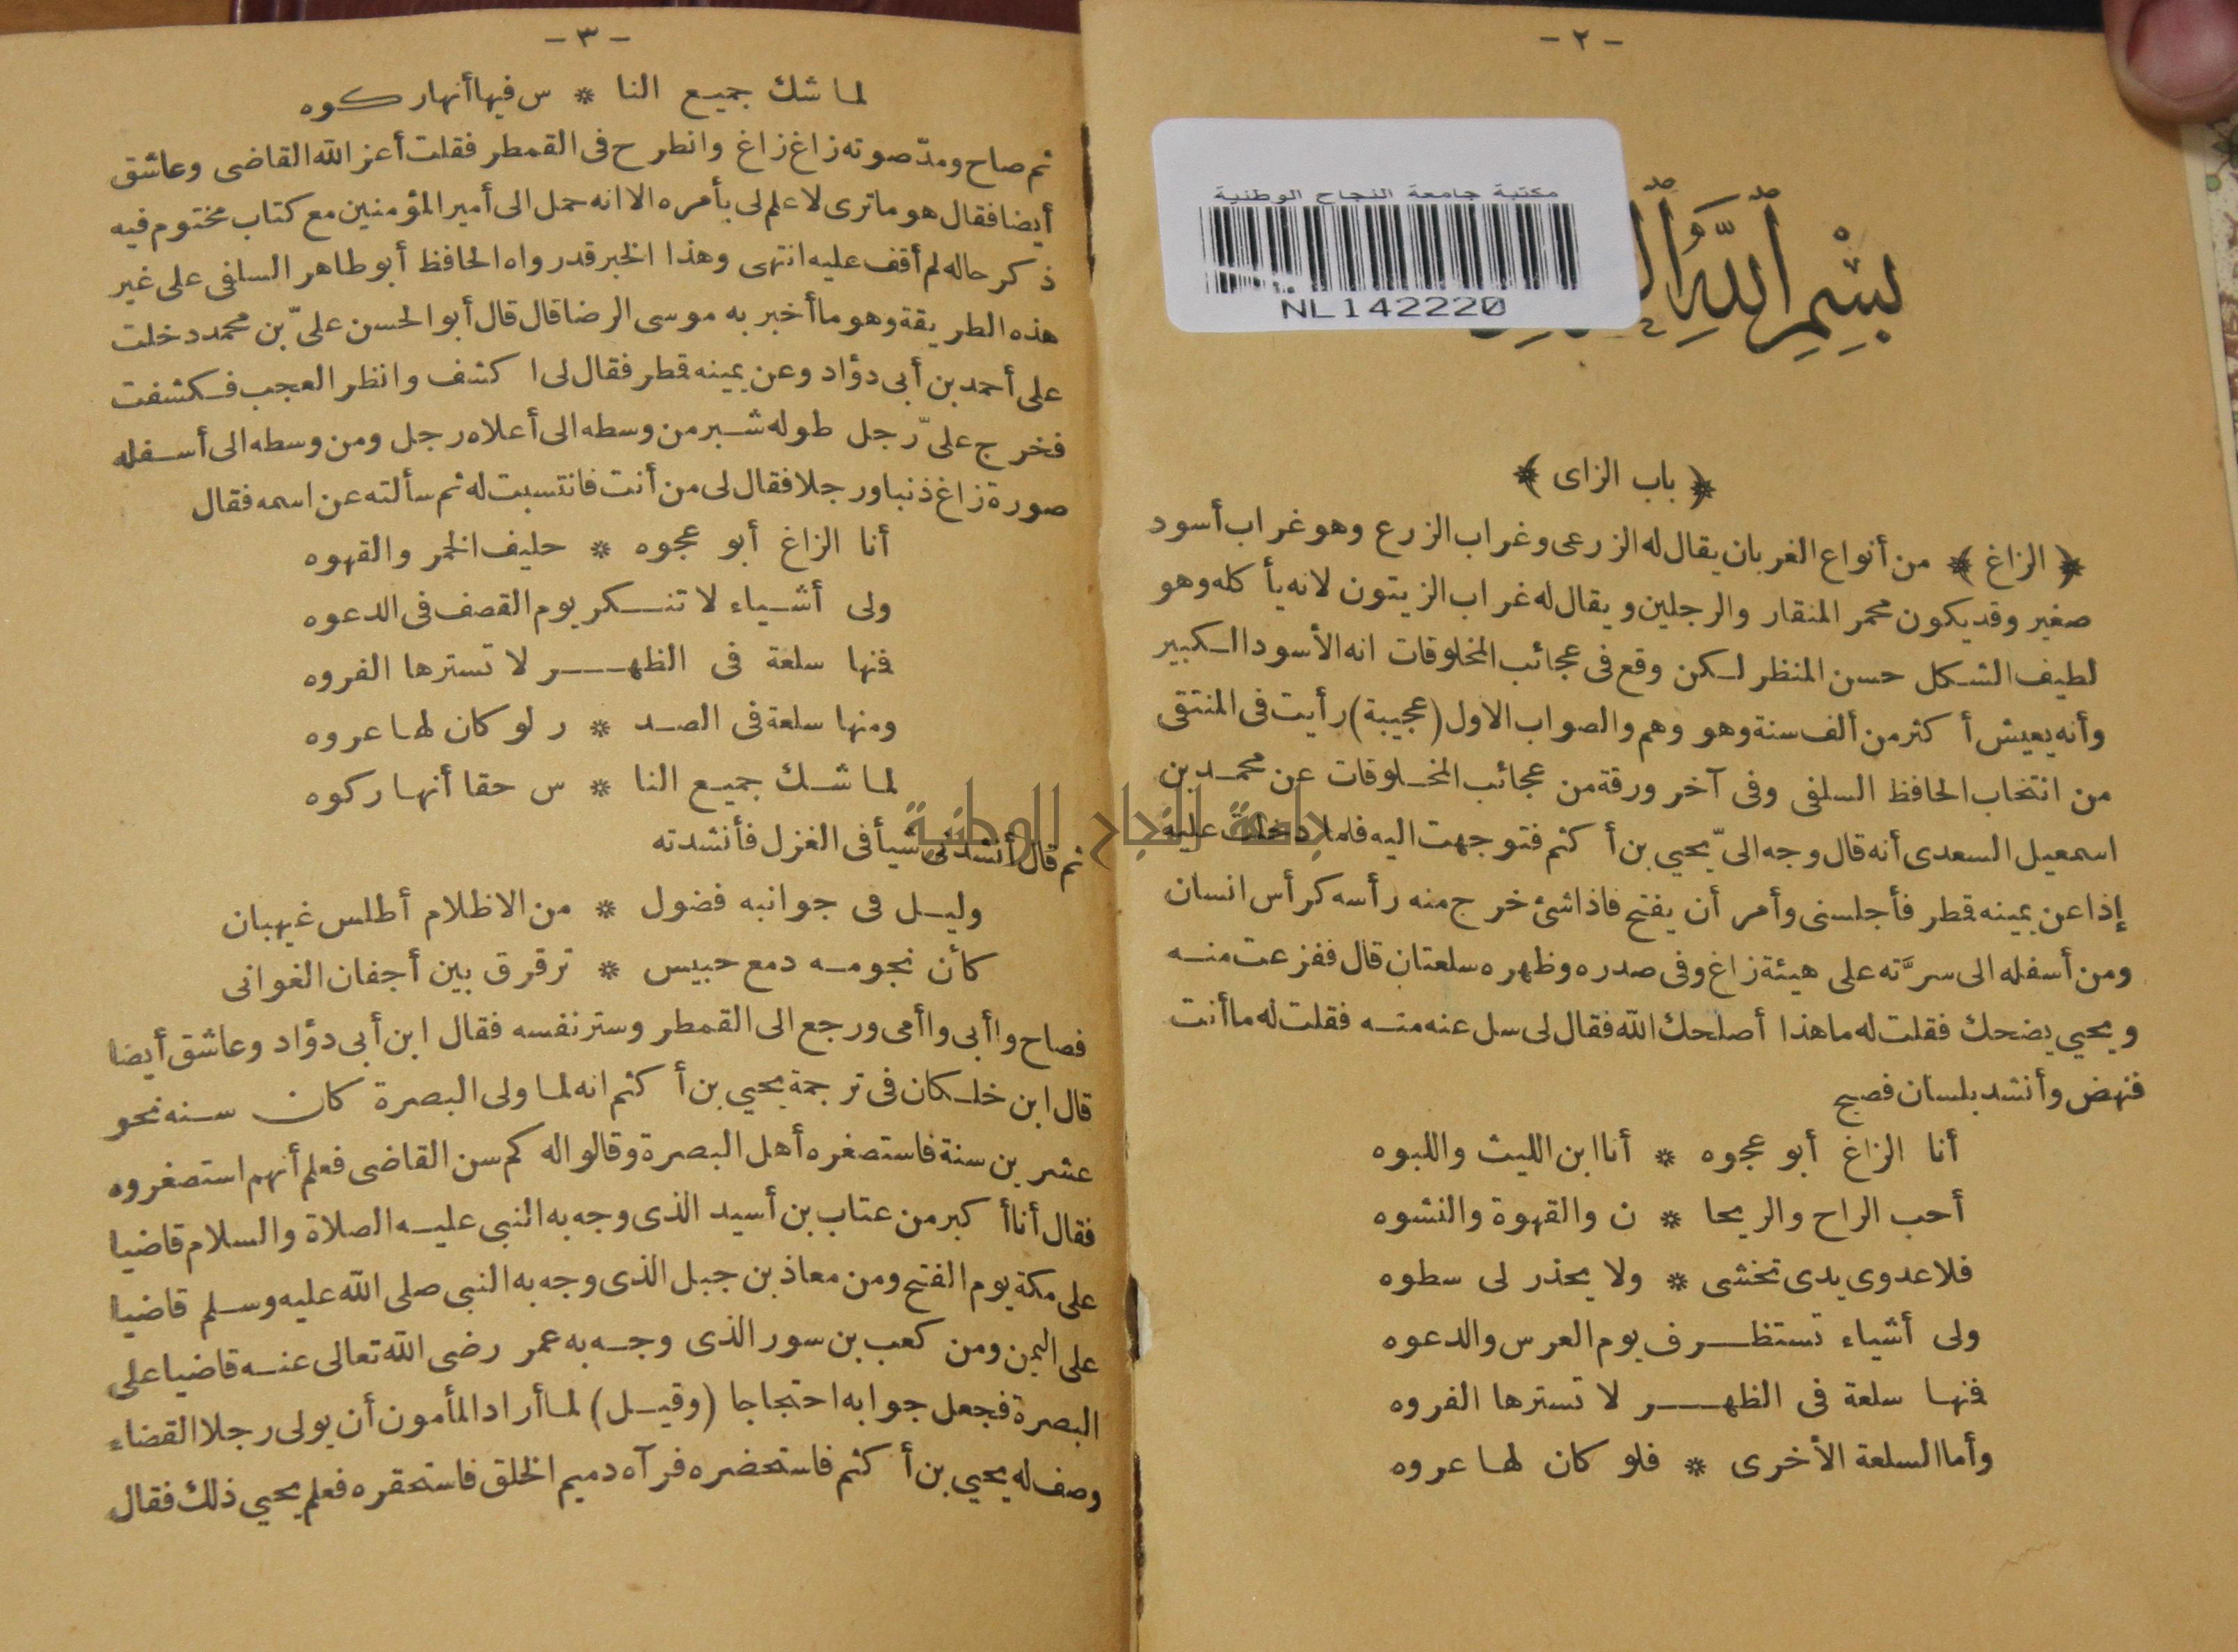 - ٢ -
مكتبة جامعة النجاح الوطنية
NL142220
بِسْمِ اللَّهِ
﴿ باب الزاى ﴾
﴿ الزاغ ﴾ من أنواع الغربان يقال له الزرعى وغراب الزرع وهو غراب أسود
صغير وقد يكون محمر المنقار والرجلين ويقال له غراب الزيتون لانه يأكله وهو
لطيف الشكل حسن المنظر لكن وقع فى عجائب المخلوقات انه الأسود الكبير
وأنه يعيش أكثر من ألف سنة وهو وهم والصواب الاول (عجيبة) رأيت فى المنتقى
من انتخاب الحافظ السلفى وفى آخر ورقة من عجائب المخلوقات عن محمد بن
اسمعيل السعدى أنه قال وجه الىّ يحيى بن أكثم فتوجهت اليه فلما دخلت عليه
إذا عن يمينه قطر فأجلسنى وأمر أن يفتح فاذا شئ خرج منه رأسه كرأس انسان
ومن أسفله الى سرّته على هيئة زاغ وفى صدره وظهره سلعتان قال ففزعت منه
ويحيى يضحك فقلت له ما هذا أصلحك الله فقال لى سل عنه منه فقلت له ما أنت
فنهض وأنشد بلسان فصيح
أنا الزاغ أبو عجوه * أنا ابن الليث واللبوه
أحب الراح والريحا * ن والقهوة والنشوه
فلا عدوى يدى تخشى * ولا يحذر لى سطوه
ولى أشياء تستظرف يوم العرس والدعوه
فنها سلعة فى الظهر لا تسترها الفروه
وأما السلعة الأخرى * فلو كان لها عروه
- ٣ -
لما شك جميع النا * س فيها أنها ركوه
ثم صاح ومدّ صوته زاغ زاغ وانطرح فى القمطر فقلت أعز الله القاضى وعاشق
أيضا فقال هو ما ترى لا علم لى بأمره الا انه حمل الى أمير المؤمنين مع كتاب مختوم فيه
ذكر حاله لم أقف عليه انتهى وهذا الخبر قد رواه الحافظ أبو طاهر السلفى على غير
هذه الطريقة وهو ما أخبر به موسى الرضا قال قال أبو الحسن علىّ بن محمد دخلت
على أحمد بن أبى دؤاد وعن يمينه قطر فقال لى اكشف وانظر العجب فكشفت
فخرج علىّ رجل طوله شبر من وسطه الى أعلاه رجل ومن وسطه الى أسفله
صورة زاغ ذنبا ورجلا فقال لى من أنت فانتسبت له ثم سألته عن اسمه فقال
أنا الزاغ أبو عجوه * حليف الخمر والقهوه
ولى أشياء لا تنكر يوم القصف فى الدعوه
فنها سلعة فى الظهر لا تسترها الفروه
ومنها سلعة فى الصد * ر لو كان لها عروه
لما شك جميع النا * س حقا أنها ركوه
ثم قال أنشدنى شيأ فى الغزل فأنشدته
وليل فى جوانبه فضول * من الاظلام أطلس غيهبان
كأن نجومه دمع حبيس * ترقرق بين أجفان الغوانى
فصاح وا أبى وا أمى ورجع الى القمطر وستر نفسه فقال ابن أبى دؤاد وعاشق أيضا
قال ابن خلكان فى ترجمة يحيى بن أكثم انه لما ولى البصرة كان سنه نحو
عشرين سنة فاستصغره أهل البصرة وقالوا له كم سن القاضى فعلم أنهم استصغروه
فقال أنا أكبر من عتاب بن أسيد الذى وجه به النبى عليه الصلاة والسلام قاضيا
على مكة يوم الفتح ومن معاذ بن جبل الذى وجه به النبى صلى الله عليه وسلم قاضيا
على اليمن ومن كعب بن سور الذى وجه به عمر رضى الله تعالى عنه قاضيا على
البصرة فجعل جوابه احتجاجا (وقيل) لما أراد المأمون أن يولى رجلا القضاء
وصف له يحيى بن أكثم فاستحضره فرآه دميم الخلق فاستحقره فعلم يحيى ذلك فقال
جامعة النجاح الوطنية